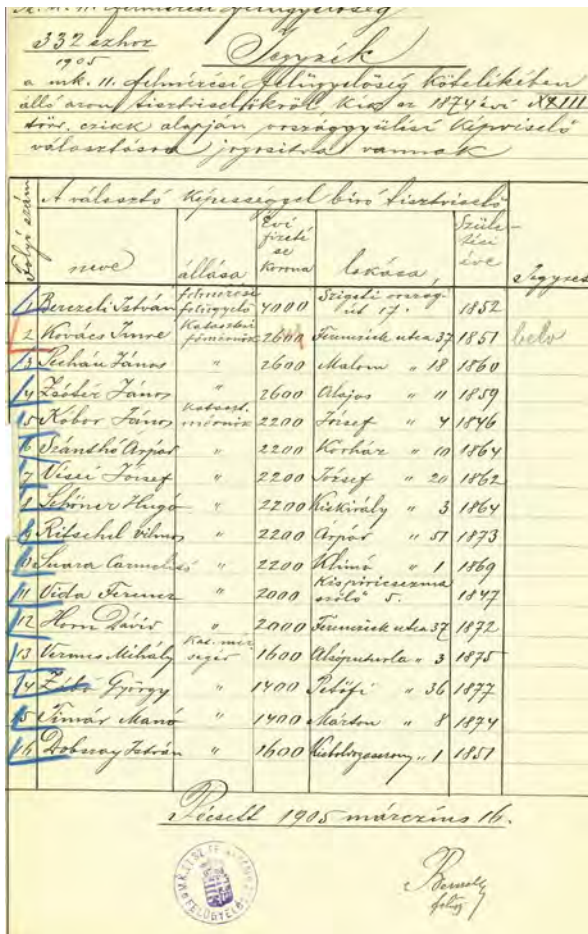 M. k. 11. felmérési felügyelőség
332 szhoz
1905
Jegyzék
a mk. 11. felmérési felügyelőség kötelékében
álló azon tisztviselőkről kik az 1874 évi XXXIII
törv. czikk alapján országgyülési képviselő
választásra jogositva vannak
Folyó szám
A választó képességgel biró tisztviselő
Jegyzet
neve állása Évi fizetése Korona lakása Születési éve
1 Berezeli István felmérési felügyelő 4000 Szigeti ország-út 17. 1852
2 Kovács Imre Kataszteri főmérnök 2600 Ferencziek utcza 37 1851 belv
3 Pechán János " 2600 Malom " 18 1860
4 Zsótér János " 2600 Alajos " 11 1859
5 Kóbor János Kataszt. mérnök 2200 József " 4 1846
6 Szánthó Árpád " 2200 Kórház " 10 1864
7 Visei József " 2200 József " 20 1862
8 Schöner Hugó " 2200 Kiskirály " 3 1864
9 Ritschel Vilmos " 2200 Árpád " 51 1873
10 Suara " 2200 Klimó " 1 1869
11 Vida Ferencz " 2000 szőlő 5. 1847
12 Horn Dávid " 2000 Ferencziek utcza 37 1872
13 Vermes Mihály Kat. mér. segéd 1600 " 3 1875
14 György " 1400 Petőfi " 36 1877
15 Timár Manó " 1400 Márton " 8 1874
16 Dobszay István " 1600 " 1 1851
Pécsett 1905 márczius 16.